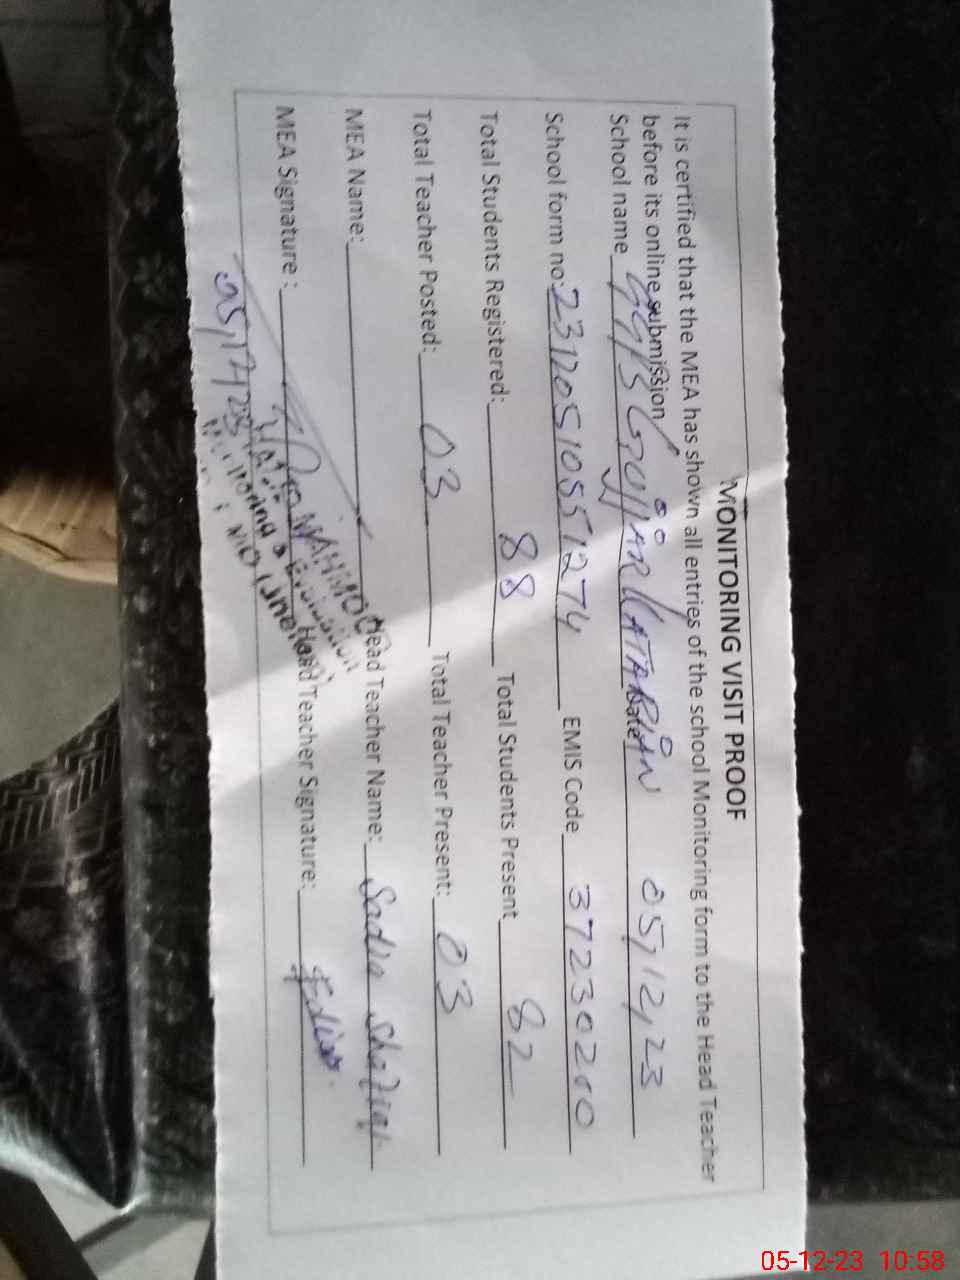 MONITORING VISIT PROOF
It is certified that the MEA has shown all entries of the school Monitoring form to the Head Teacher
before its online submission
School name GGPS GUJJAR KATARIAN Date 05/12/23
School form no: 23120510551274 EMIS Code 37230210
Total Students Registered: 88 Total Students Present 82
Total Teacher Posted: 03 Total Teacher Present: 03
MEA Name: Head Teacher Name: Sadia
MEA Signature: Head Teacher Signature:
MAHMOOD
Monitoring & Evaluation
05/12/23
05-12-23 10:58